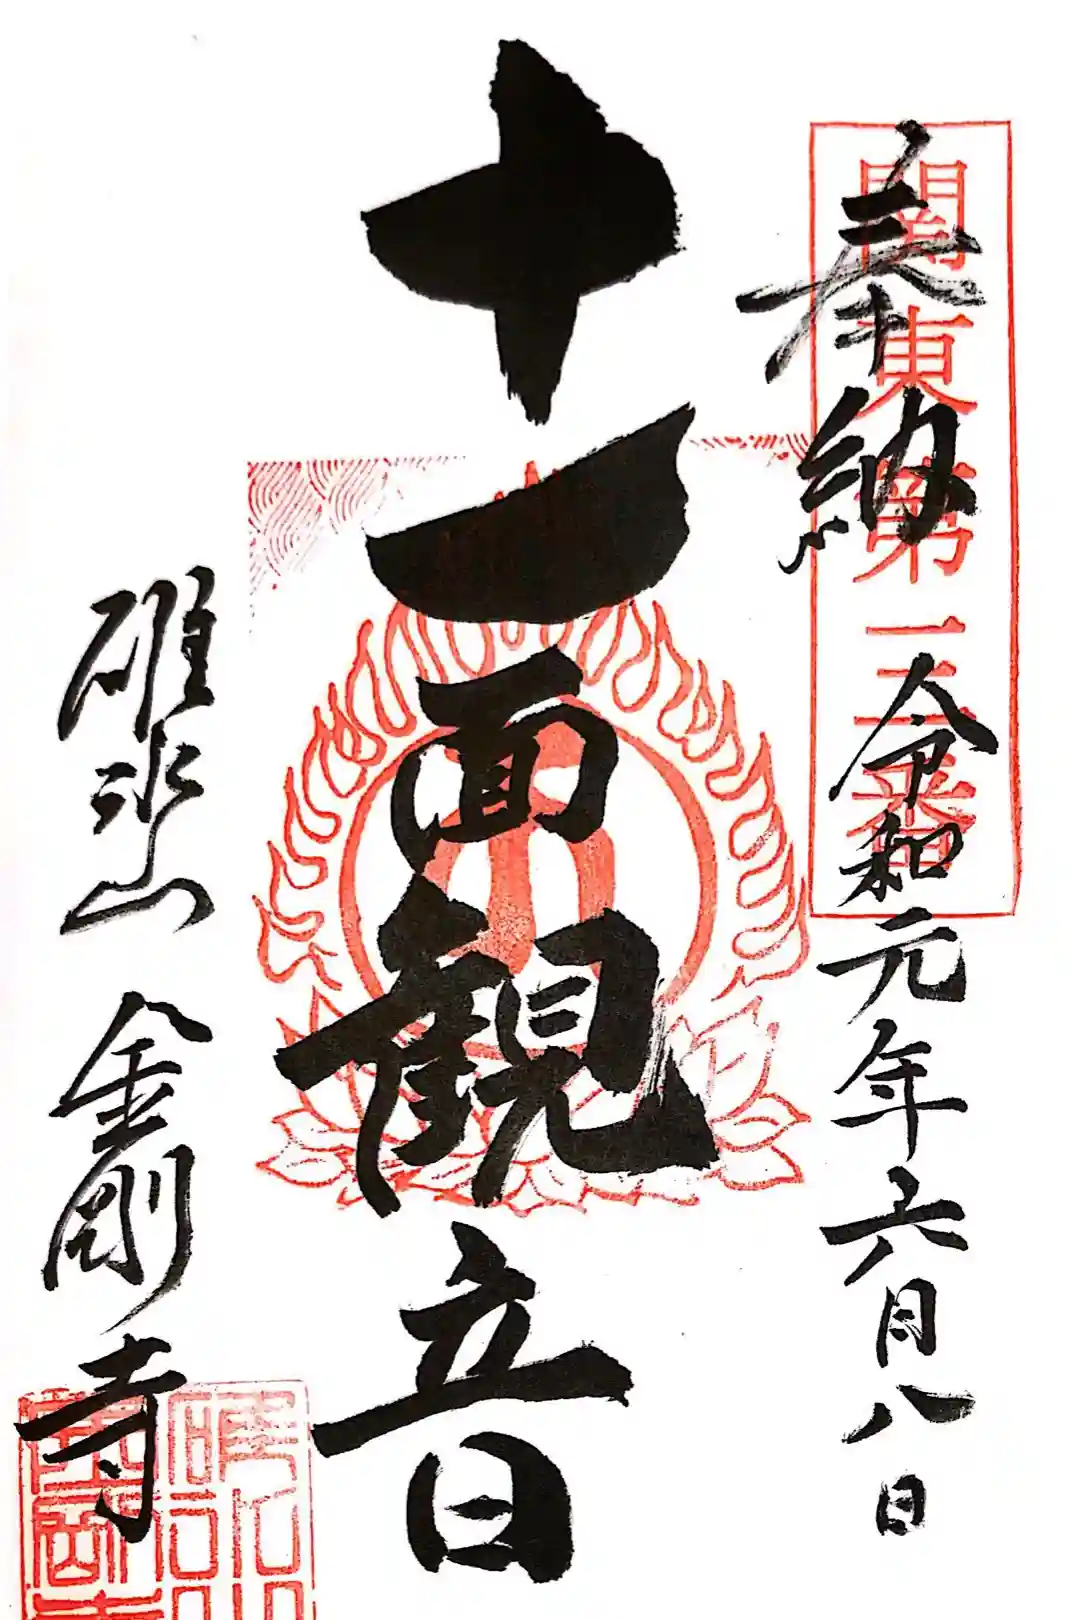 奉納
関東第二番
令和元年六月八日
十一面観音
碓氷山 金剛寺